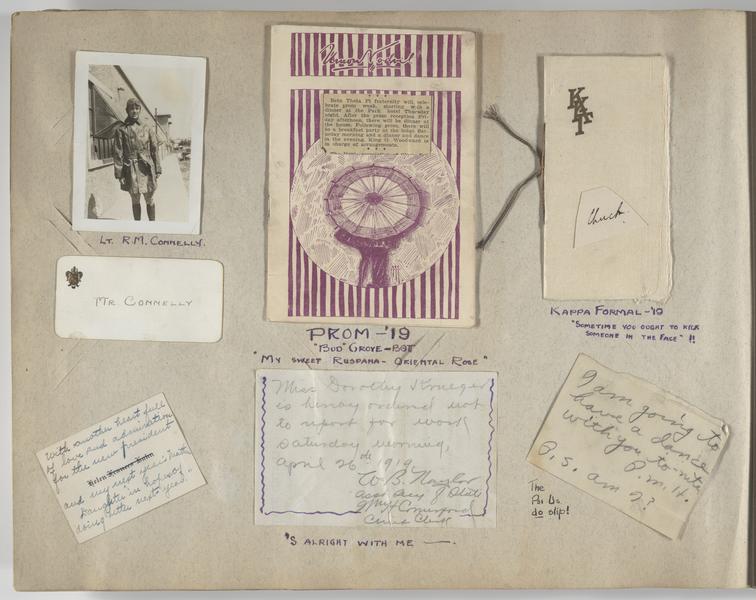 Beta Theta Pi fraternity will cele-
brate prom week, starting with a
dinner at the Park hotel Thursday
night. After the prom reception Fri-
day afternoon, there will be dinner at
the house. Following prom, there will
be a breakfast party at the lodge Sat-
urday morning and a dinner and dance
in the evening. King G. Woodward is
in charge of arrangements.
KAΓ
Chuck.
LT. R.M. CONNELLY.
MR CONNELLY
PROM-'19
"BUD" GROVE-BΘΠ
"MY SWEET RUSPANA- ORIENTAL ROSE"
KAPPA FORMAL-'19
"SOMETIME YOU OUGHT TO KICK
SOMEONE IN THE FACE" !!
With another heart full
of love and admiration
for the new president
Helen Frances Kuhn
and my next year's
Daughter in hopes of
doing better next year."
Miss Dorothy Krueger
is hereby ordered not
to report for work
Saturday morning,
April 26th 1919
W B Naylor
Chief Clerk
'S ALRIGHT WITH ME —.
I am going to
have a dance
with you to-nite
P.M.H.
P.S. am I?
The
Phi Us.
do slip!